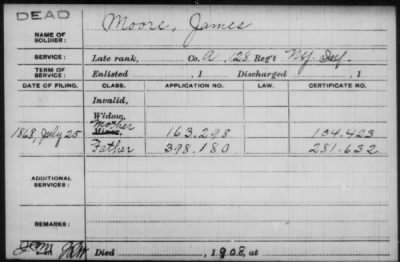 DEAD
NAME OF SOLDIER: Moore, James
SERVICE: Late rank, Co. A, 128 Reg't N.Y. Inf.
TERM OF SERVICE: Enlisted , 1 Discharged , 1
DATE OF FILING. CLASS. APPLICATION NO. LAW. CERTIFICATE NO.
Invalid,
Widow,
1868, July 25 Minor, Mother 163.298 134.423
Father 398.180 281.632
ADDITIONAL SERVICES:
REMARKS:
Died , 1908, at